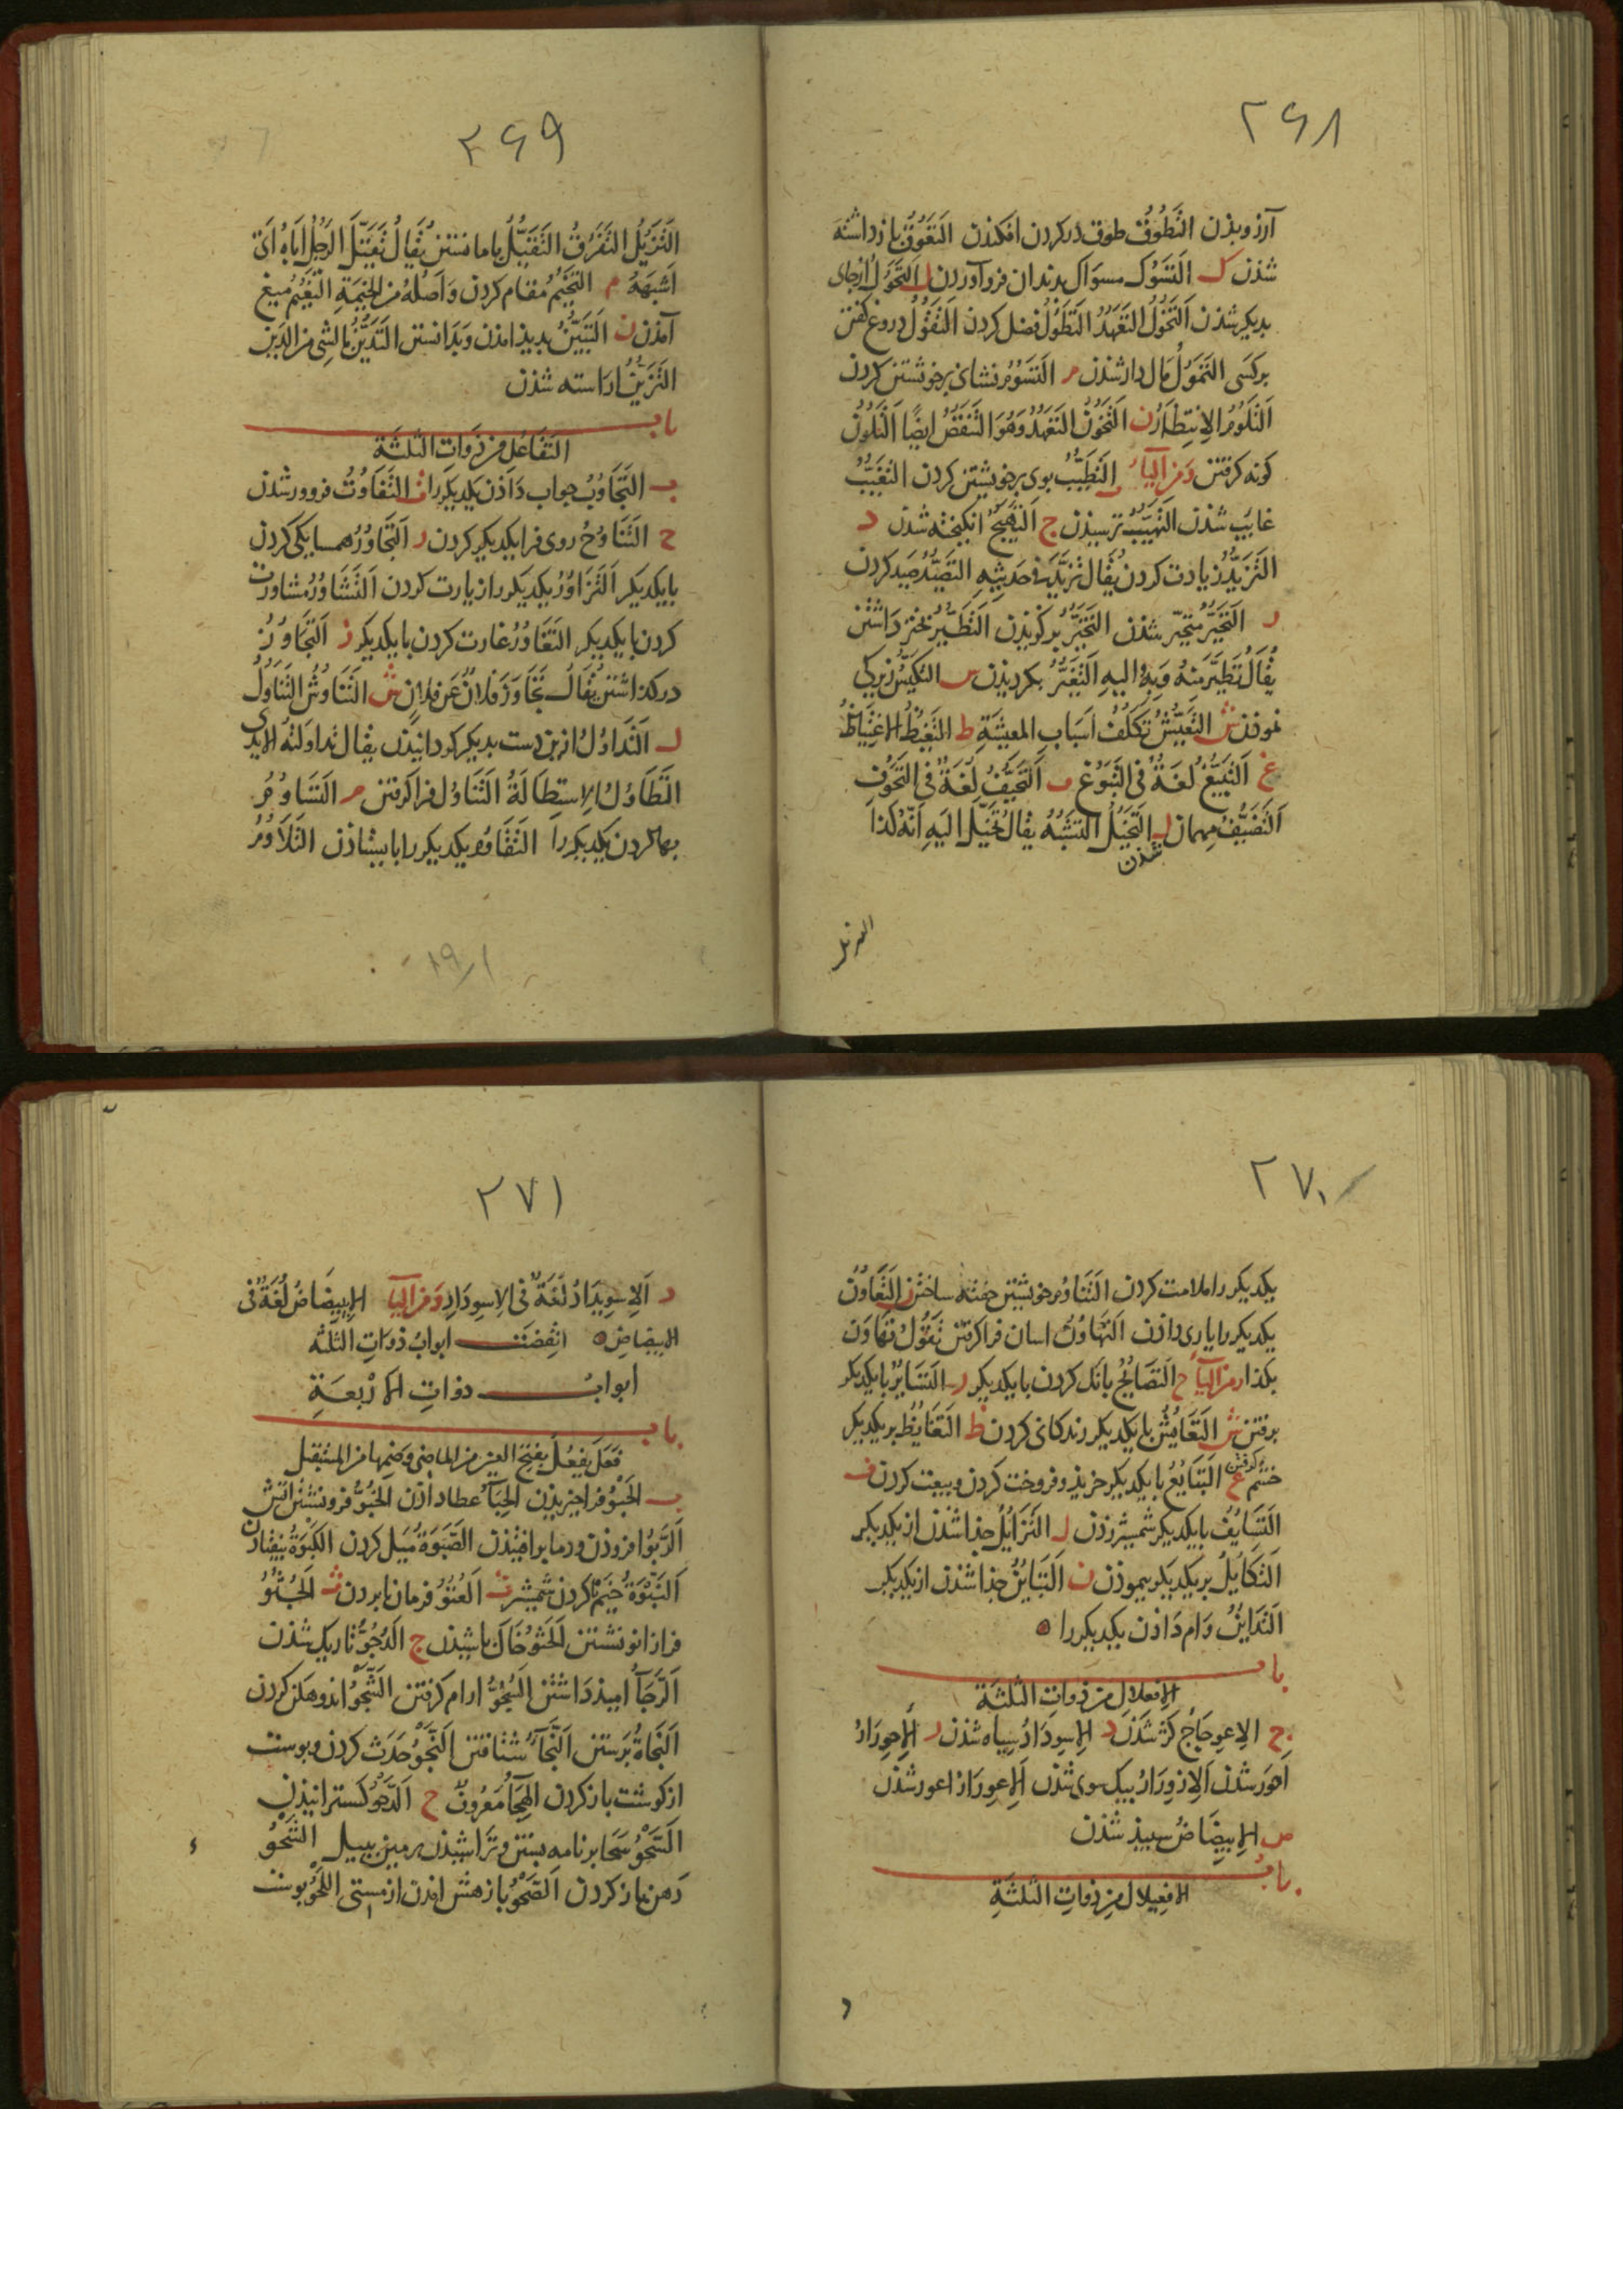 ۲۶۸
آرزو بذن التَّطَوُّق طوق در کردن افکندن التَّعَوُّق باز داشته
شذن ک التَّسَوُّک مسواک بدندان فرو آوردن ل التَّحَوُّل از جای
بدیکر شذن التَّخَوُّلُ التَّعَهُّدُ التَّطَوُّلُ فضل کردن التَّقَوُّلُ دروغ کفتن
بر کسی التَّمَوُّلُ مال دار شذن م التَّسَوُّمُ نشان بر خویشتن کردن
التَّلَوُّمُ الاِنتِظَارُ ن التَّخَوُّنُ التَّعَهُّدُ وَهُوَ التَّنَقُّصُ ایضًا التَّلَوُّنُ
کونه کرفتن وَمِنَ الیَآءِ ب التَّطَیُّبُ بوی بر خویشتن کردن التَّغَیُّبُ
غایب شذن التَّهَیُّبُ ترسیذن ج التَّهَیُّجُ انکیخته شذن د
التَّزَیُّدُ زیادت کردن یُقَال تَزَیَّدَ فی حَدیثِهِ التَّصَیُّدُ صید کردن
ر التَّحَیُّرُ متحیّر شذن التَّخَیُّرُ بر کزیذن التَّطَیُّرُ
یُقَالُ تَطَیَّرَ مِنهُ وَبِهِ التَّغَیُّرُ بکردیذن س التَّکَیُّسُ زیرکی
نموذن ش التَّعَیُّشُ تکَلُّفُ اَسبَابِ المعیشَةِ ظ التَّغَیُّظُ الاغتِیَاظُ
غ التَّبَیُّغُ لُغَةٌ فی التَّبَوُّغِ ف التَّحَیُّفُ لُغَةٌ فی التَّحَوُّفِ
التَّضَیُّفُ مهمان شذن ل التَّخَیُّلُ التَّشَبُّهُ یقالُ تُخُیِّلَ اِلَیهِ اَنَّهُ کَذَا
التزیل
۲۶۹
التَّزَیُّلُ التَّفَرُّقُ التَّقَیُّلُ باما مانستن یُقَالُ تَقَیَّلَ الرَّجُلُ اَبَاهُ اَی
اَشبَهَهُ م التَّخَیُّمُ مُقام کردن وَاَصلُهُ مِنَ الخَیمَةِ التَّغَیُّمُ میغ
آمذن ن التَّبَیُّنُ بدیذ امذن وَبَدَانستن التَّدَیُّنُ بِالشِّی مِنَ الدِّینِ
التَّزَیُّنُ اراسته شذن
باب
التَّفَاعُل مِن ذَوَاتِ الثَّلٰثَةِ
ب التَّجَاوُبُ جواب دَاذن یکدیکر را ت التَّفَاوُتُ فرو ورشذن
ح التَّنَاوُحُ روی فرا یکدیکر کردن ر التَّجَاوُرُ همسایکی کردن
بایکدیکر التَّزَاوُرُ یکدیکر را زیارت کردن التَّشَاوُرُ مشاورت
کردن بایکدیکر التَّغَاوُرُ غارت کردن بایکدیکر ز التَّجَاوُزُ
درکذاشتن یُقَالُ تَجَاوَزَ فلانٌ عَن فلانٍ ش التَّنَاوُشُ التَّنَاوُلُ
ل التَّدَاوُلُ ازین دست بدیکر کردانیدن یقال تداولته الایدی
التَّطَاوُلُ الاِستِطَالَةُ التَّنَاوُلُ فرا کرفتن م التَّسَاوُمُ
بها کردن یکدیکر را التَّقَاوُمُ یکدیکر را بایستاذن التَّلَاوُمُ
۱۹/۱
۲۷۰
یکدیکر را ملامت کردن التَّنَاوُم خویشتن خفته ساختن ن التَّعَاوُن
یکدیکر را یاری داذن التَّهَاوُنُ اسان فرا کرفتن تَقُولُ تَهَاوَن
بکذا وَمِنَ الیَآءِ ح التَّصَایُحُ بانک کردن بایکدیکر ر التَّسَایُرُ بایکدیکر
برفتن ش التَّعَایُشُ بایکدیکر زندکانی کردن ظ التَّغَایُظُ بر یکدیکر
خشم کرفتن ع التَّبَایُعُ بایکدیکر خریذ و فروخت کردن و بیعت کردن ف
التَّسَایُفُ بایکدیکر شمشیر زدن ل التَّزَایُلُ جذا شذن از یکدیکر
التَّکَایُلُ بر یکدیکر بیموذن ن التَّبَایُنُ جذا شذن از یکدیکر
التَّدَایُنُ وَام دَاذن یکدیکر را
باب
الاِفعِلال مِن ذَوَاتِ الثَّلٰثَةِ
ج الاِعوِجَاجُ کژ شذن د الاِسوِدَادُ سیاه شذن ر الاِحوِرَارُ
احوَر شذن الاِزوِرَارُ بیک سوی شذن الاِعوِرَارُ اعور شذن
ض الاِبیِضَاضُ سبیذ شذن
باب
الافعیلال مِن ذَوَاتِ الثَّلٰثَةِ
۲۷۱
د الاِسوِیدَادُ لُغَةٌ فی الاِسوِدَادِ وَمِنَ الیَآءِ الاِبیِیضَاضُ لُغَةٌ فی
الابیضاض انقضَت ابوابُ ذَوَاتِ الثلثه
ابوابُ ذواتِ الاَربَعَةِ
باب
فَعَلَ یَفعُلُ بِفَتحِ العین مِن الماضی وضمّها مِن المستقبل
ب الحَبوُ فرا خیزیذن الحِبَآءُ عطا داذن الخُبُوُّ فرو نشستن آتش
الرَّبوُ افزوذن ودما بر افتیذن الصَّبوَةُ مَیل کردن الکَبوَةُ بیفتاذن
النَّبوَةُ کردن شمشیر ت العُتُوُّ فرمان نابردن ث الجُثُوُّ
فرا زانو نشستن الحَثوُ خاک باشیذن ج الدُّجُوُّ تاریک شذن
الرَّجَآءُ امیذ دَاشتن السُّجُوُّ ارام کرفتن الشَّجوُ اندوهکن کردن
النَّجَاةُ برستن النَّجَآءُ شتافتن النَّجوُ حَدَث کردن و بوست
از کوشت باز کردن الهِجَآءُ مَعرُوفٌ ح الدَّحوُ کسترانیذن
السَّحوُ سَحا بر نامه بستن وتراشیذن زمین ببیل الشَّحوُ
دَهن باز کردن الصَّحوُ باز هش امذن از مستی اللَّحوُ بوست